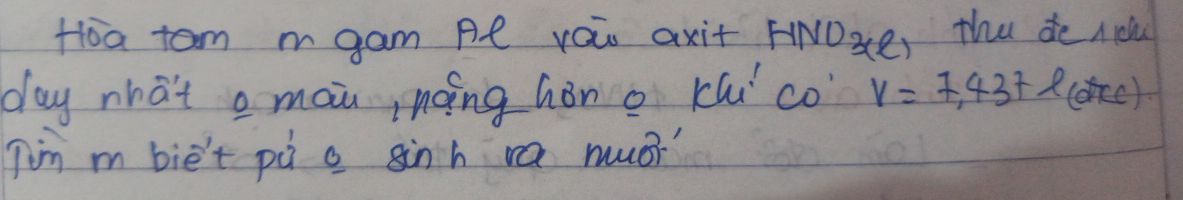 Hòa tam m gam Al vào axit HNO3(l), thu đc 1 chất
duy nhất o màu, nặng hơn o khí có V = 7,437 l (đkc).
Tìm m biết pứ o sinh ra muối